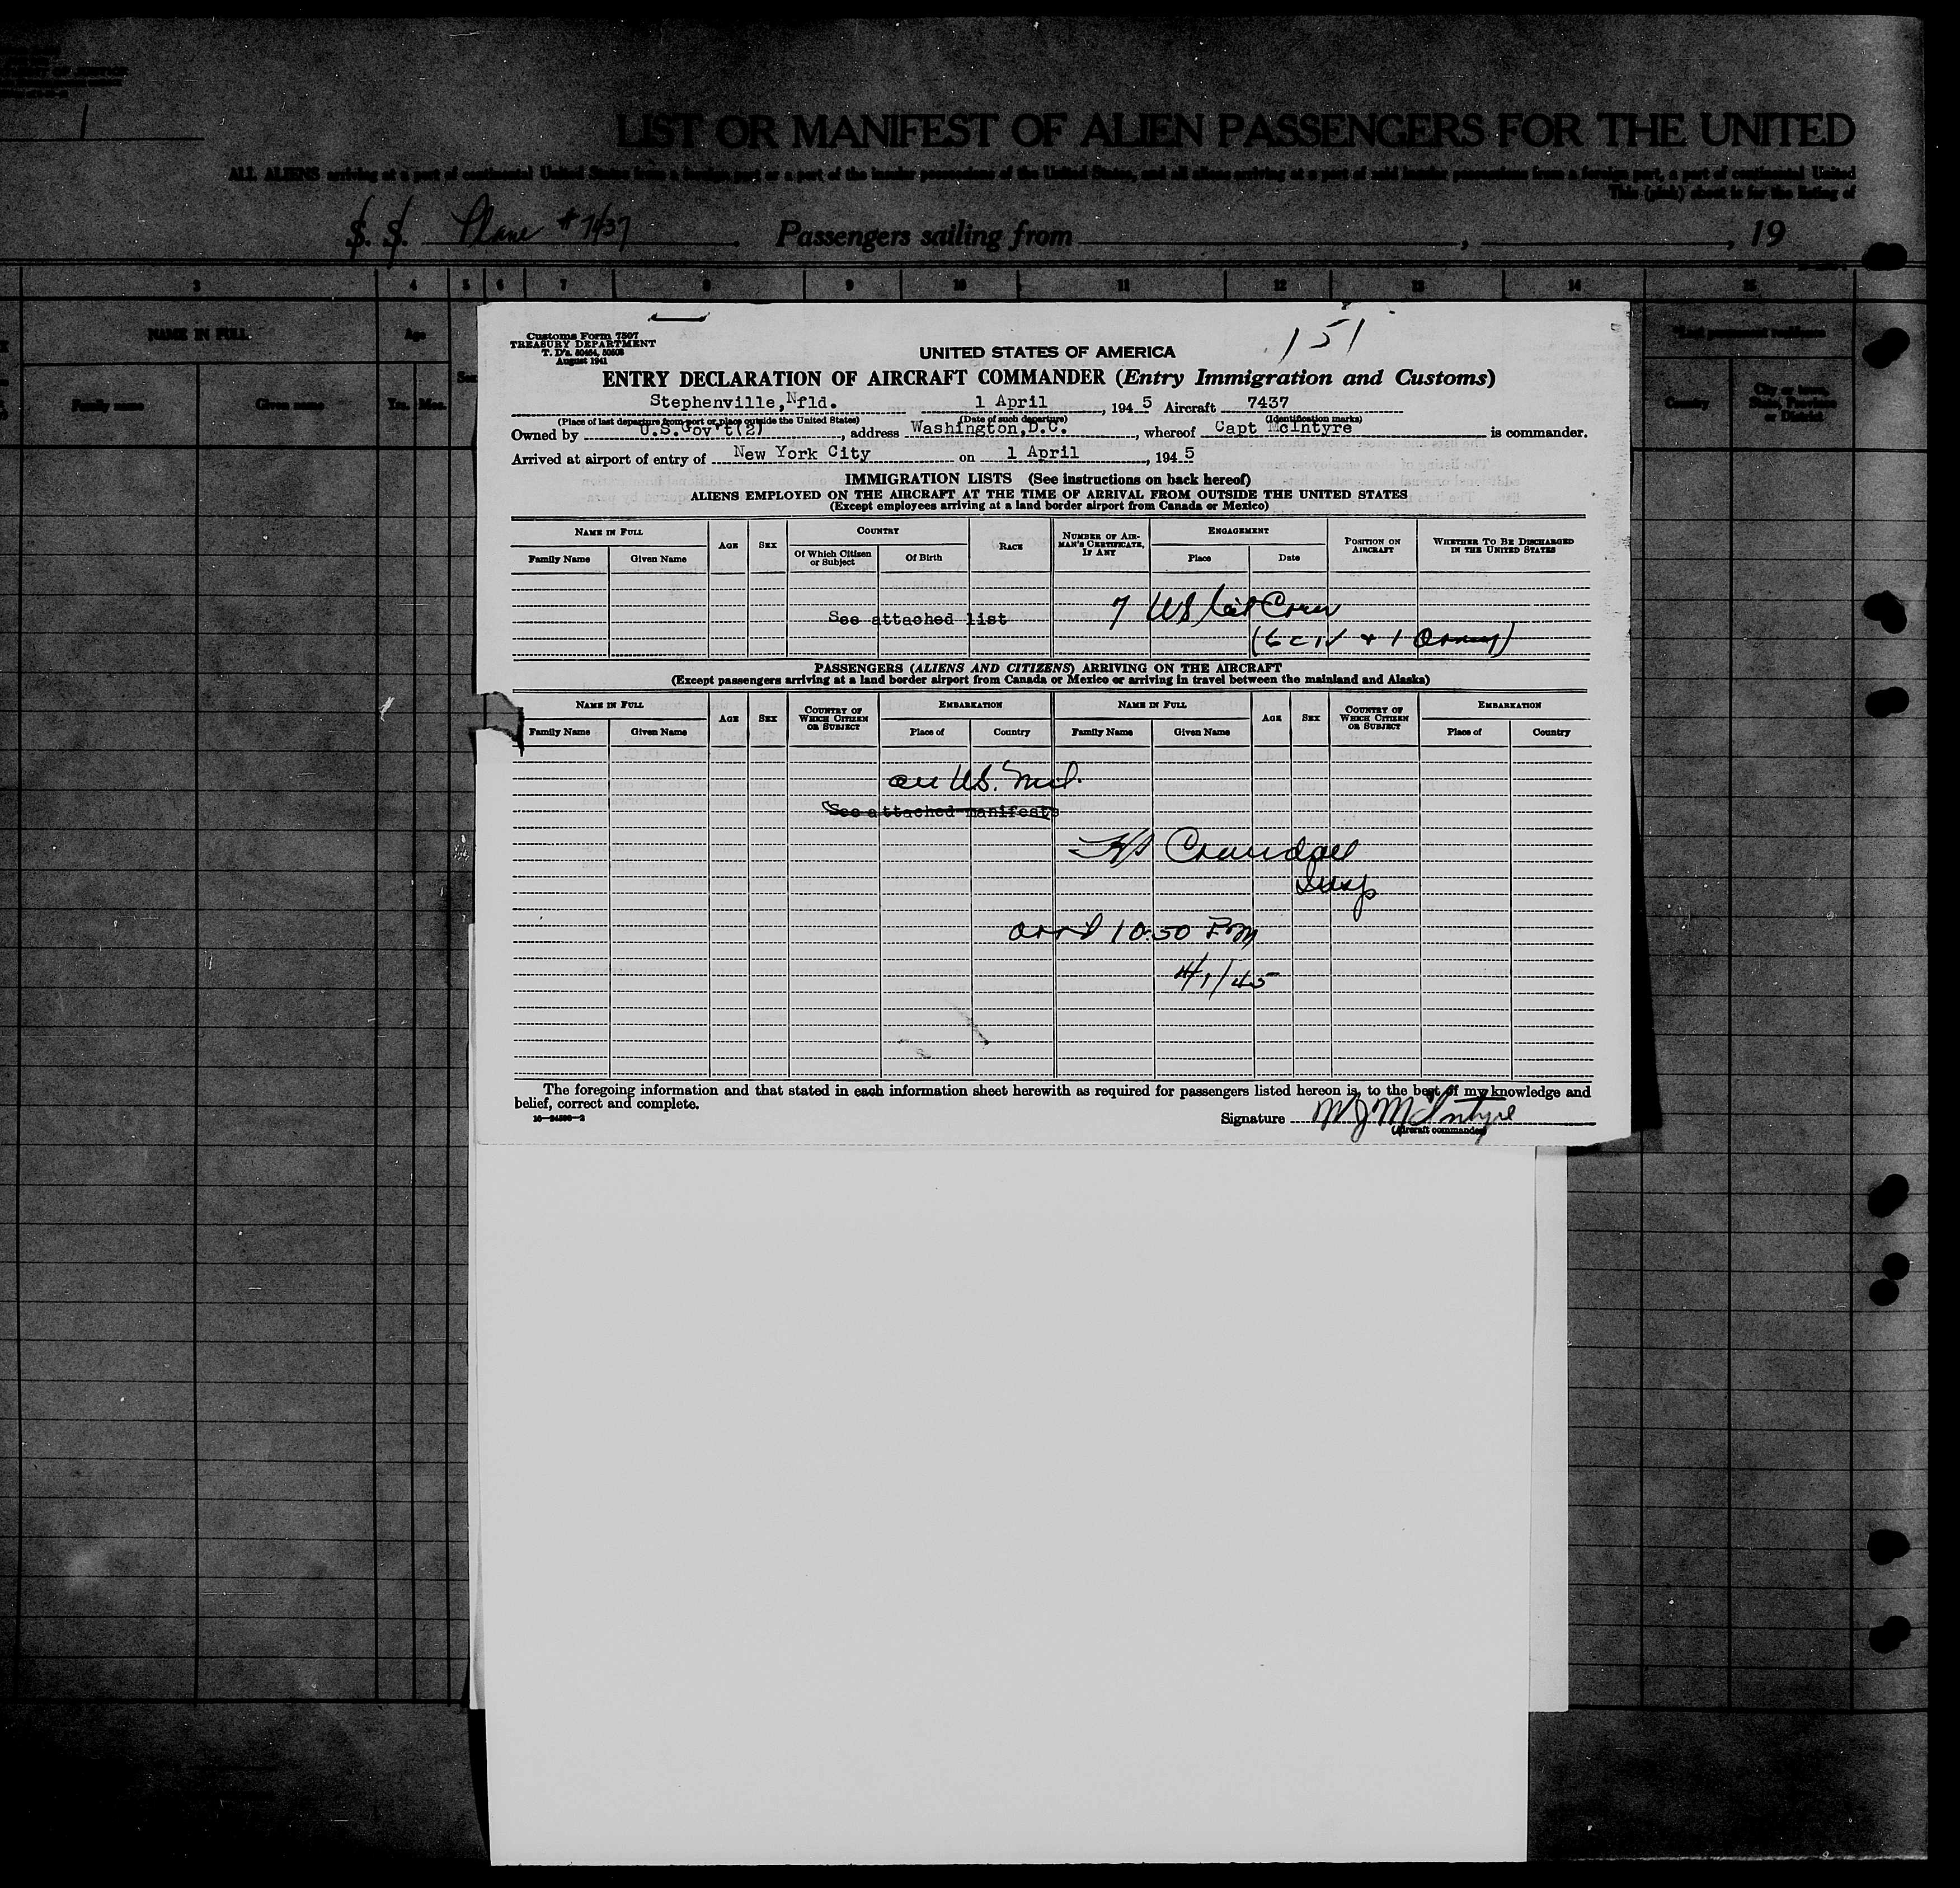 LIST OR MANIFEST OF ALIEN PASSENGERS FOR THE UNITED
ALL ALIENS arriving at a port of continental United States from a foreign port or a port of the insular possessions of the United States, and all aliens arriving at a port of said insular possessions from a foreign port, a port of continental United
This (pink) sheet is for the listing of
S. S. Plane #7437 Passengers sailing from , , 19
3 4 5 6 7 8 9 10 11 12 13 14 15
NAME IN FULL Age
Family name Given name Yrs. Mos. Sex
*Last permanent residence
Country City or town, State, Province or District
Customs Form 7507
TREASURY DEPARTMENT
T. D's. 50464, 50508
August 1941
151
UNITED STATES OF AMERICA
ENTRY DECLARATION OF AIRCRAFT COMMANDER (Entry Immigration and Customs)
Stephenville, Nfld. 1 April , 194 5 Aircraft 7437
(Place of last departure from port or place outside the United States) (Date of such departure) (Identification marks)
Owned by U.S.Gov't(2) , address Washington,D.C. , whereof Capt McIntyre is commander.
Arrived at airport of entry of New York City on 1 April , 194 5
IMMIGRATION LISTS (See instructions on back hereof)
ALIENS EMPLOYED ON THE AIRCRAFT AT THE TIME OF ARRIVAL FROM OUTSIDE THE UNITED STATES
(Except employees arriving at a land border airport from Canada or Mexico)
NAME IN FULL AGE SEX COUNTRY RACE NUMBER OF AIRMAN'S CERTIFICATE, IF ANY ENGAGEMENT POSITION ON AIRCRAFT WHETHER TO BE DISCHARGED IN THE UNITED STATES
Family Name Given Name Of Which Citizen or Subject Of Birth Place Date
See attached list 7 US Cit Crew
(6 civ + 1 Army)
PASSENGERS (ALIENS AND CITIZENS) ARRIVING ON THE AIRCRAFT
(Except passengers arriving at a land border airport from Canada or Mexico or arriving in travel between the mainland and Alaska)
NAME IN FULL AGE SEX COUNTRY OF WHICH CITIZEN OR SUBJECT EMBARKATION NAME IN FULL AGE SEX COUNTRY OF WHICH CITIZEN OR SUBJECT EMBARKATION
Family Name Given Name Place of Country Family Name Given Name Place of Country
all US. Mil.
See attached manifests
Crandall
Insp
arrd 10:50 PM
4/1/45
The foregoing information and that stated in each information sheet herewith as required for passengers listed hereon is, to the best of my knowledge and
belief, correct and complete.
Signature M J McIntyre
(Aircraft commander)